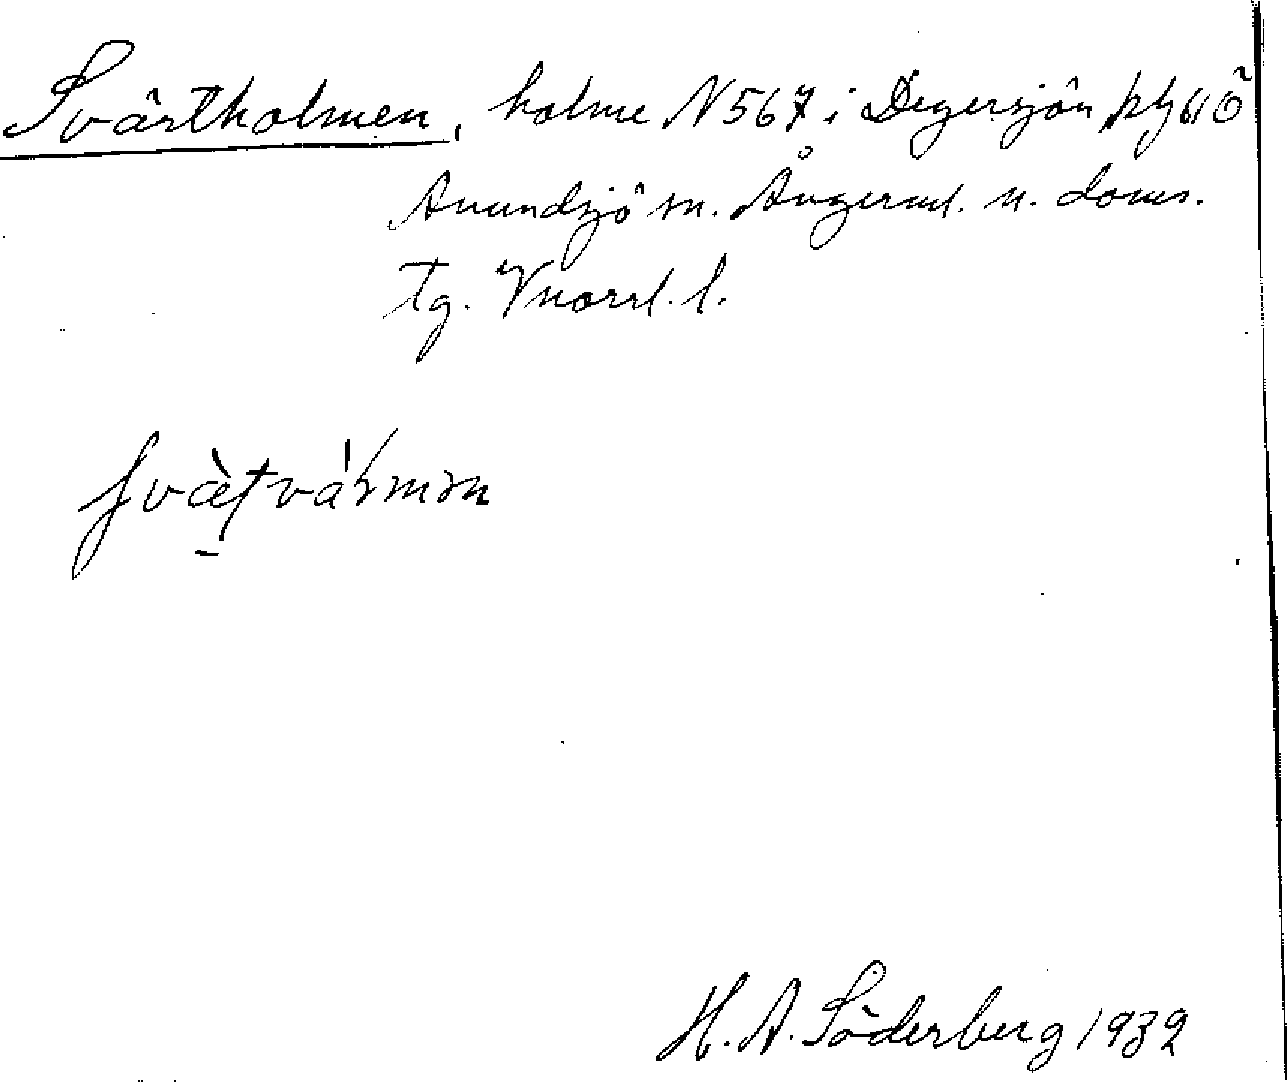 Svärtholmen, holme N 567 i Degersjön
Anundsjö sn. Ångerml. n. doms.
tg. Vnorrl. l.
H. A. Söderberg 1932